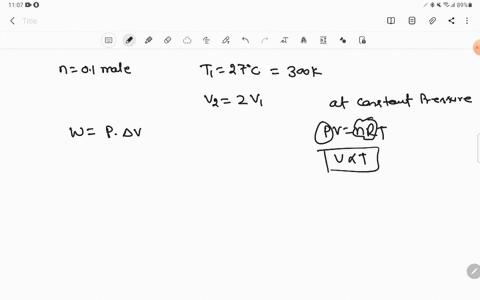 11:07
89%
Title
n=0.1 mole T₁=27°C = 300K
V₂=2V₁ at constant Pressure
W= P.ΔV PV=nRT
V∝T